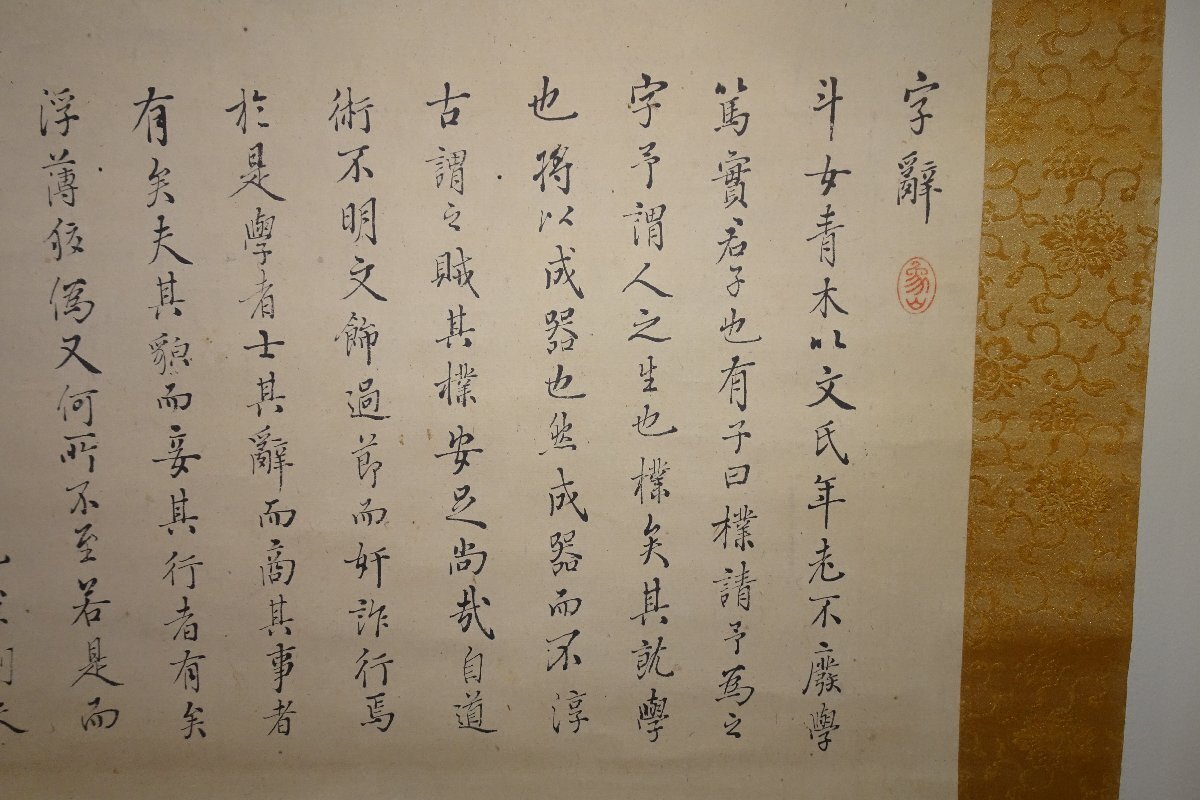 字辭
象山
斗女青木以文氏年老不廢學
篤實君子也有子曰樸請予為之
字予謂人之生也樸矣其就學
也將以成器也然成器而不淳
古謂之賊其樸安足尚哉自道
術不明文飾過節而奸詐行焉
於是學者士其辭而商其事者
有矣夫其貌而妾其行者有矣
浮薄佞偽又何所不至若是而